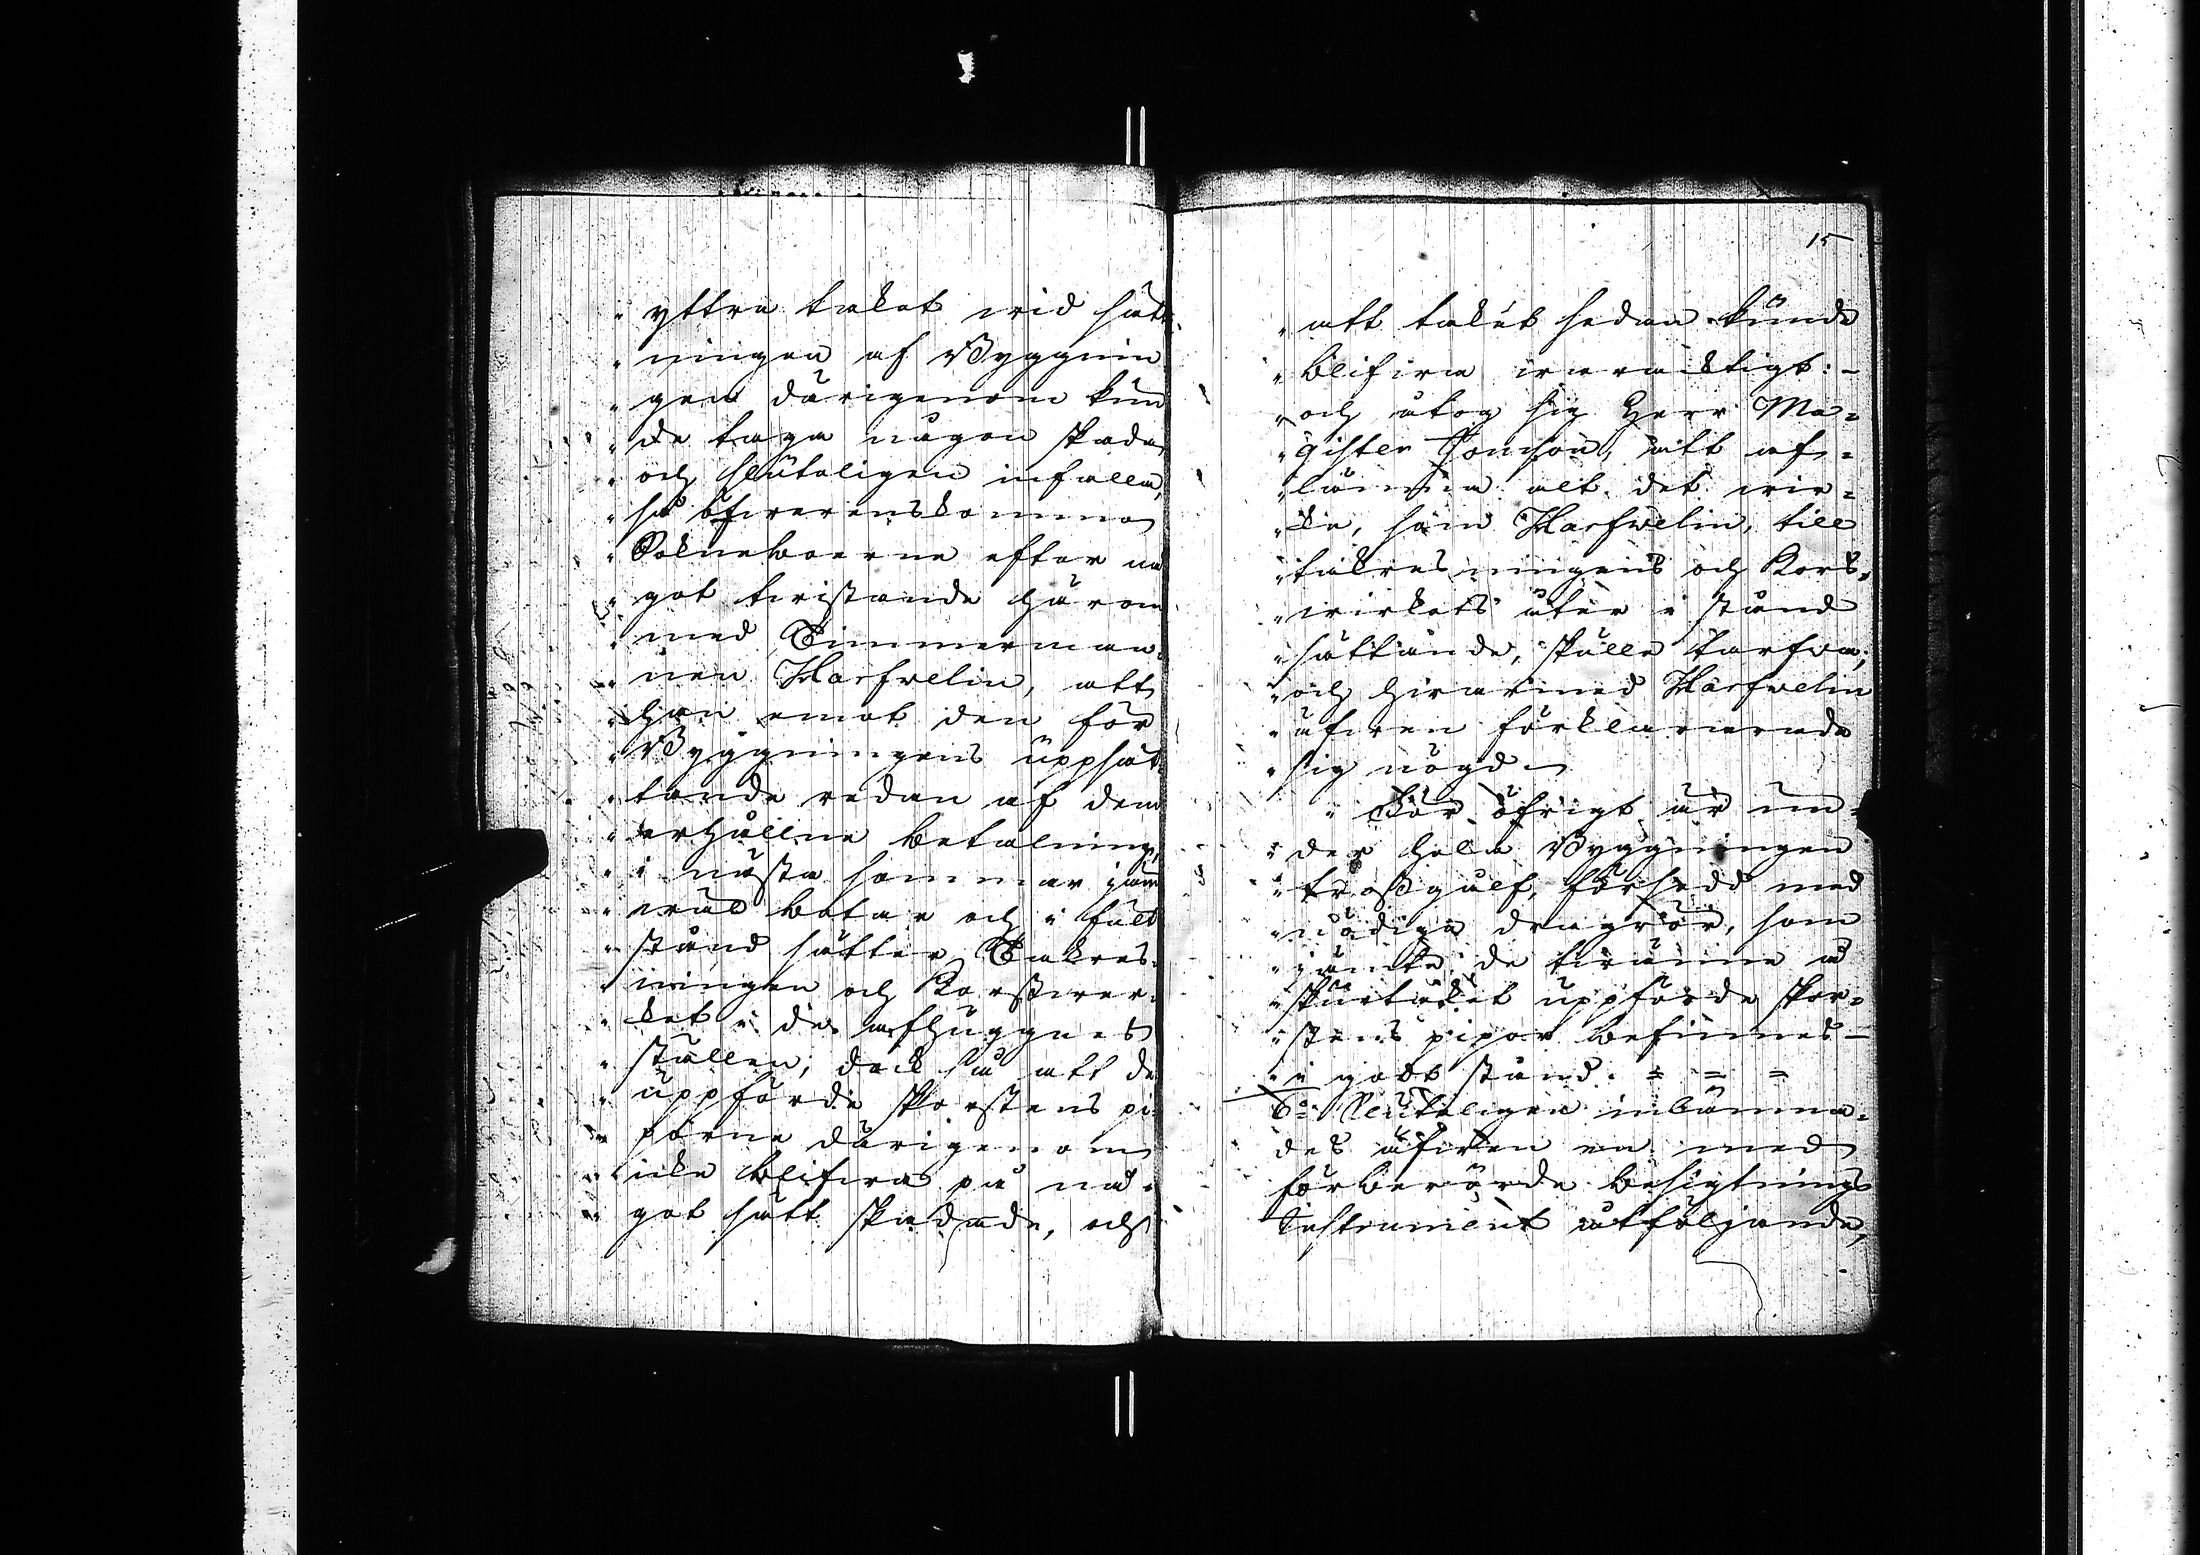 " yttra taket wid sätt-
" ningen af Byggnin
" gen därigenom kun
" de taga någon skada
" och sluteligen infalla,
" så öfwerenskommo
" Sokneboerne efter nå
" got twistande härom
" med Timmerman-
" nen Harfwelin, att
" han emot den för
" Byggningens uppsät-
" tande redan af dem
" erhållne betalning,
" i nästa sommar jäm
" wäl botar och i fult
" stånd sätter Takres-
" ningen och Korsswer-
" ket i de afhuggnes
" ställen; dock så att de
" uppförde skorstens pi-
" porne därigenom
" icke blifwa på nå-
" got sätt skadade, och
15
" att taket sedan kunde
" blifwa waracktigt: -
" och åtog sig Herr Ma=
" gister Jonson, att af=
" lämna alt det wir=
" ke, som Harfwelin, till
" takresningens och Kors-
" wirkets åter i stånd
" sättande, skulle tarfwa;
" och hwarmed Harfwelin
" äfwen förklarade
" sig nögd.
" För öfrigt är un=
" der hela Byggningen
" trossgålf, försedd med
" nödiga dragrör, som
" jämte de twänne å
" spåntaket uppförde skor=
" stens pipor befinnes -
" i godt stånd. = = =
6:o Sluteligen inlämna=
des äfwen en med
förberörde besigtnings
Instrument åtföljande,